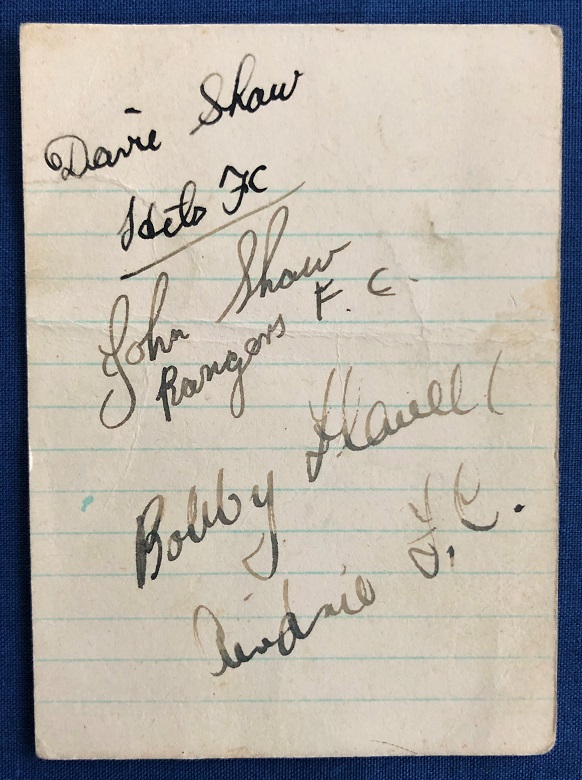 Davie Shaw
Hibs FC
John Shaw
Rangers F. C.
Bobby Flavell
Airdrie F. C.